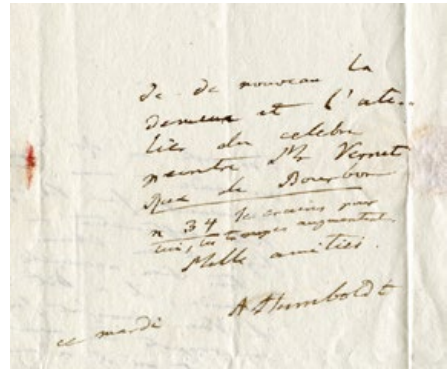 de nouveau la
demeure et l'ate-
lier du celebre
peintre Mr Vernet
Rue de Bourbon
n 34 pour
les augmentent
Mille amitiés.
AHumboldt
ce mardi